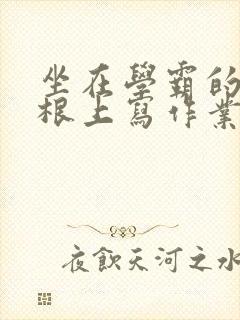 坐在學霸的
根上寫作業
夜飲天河之水